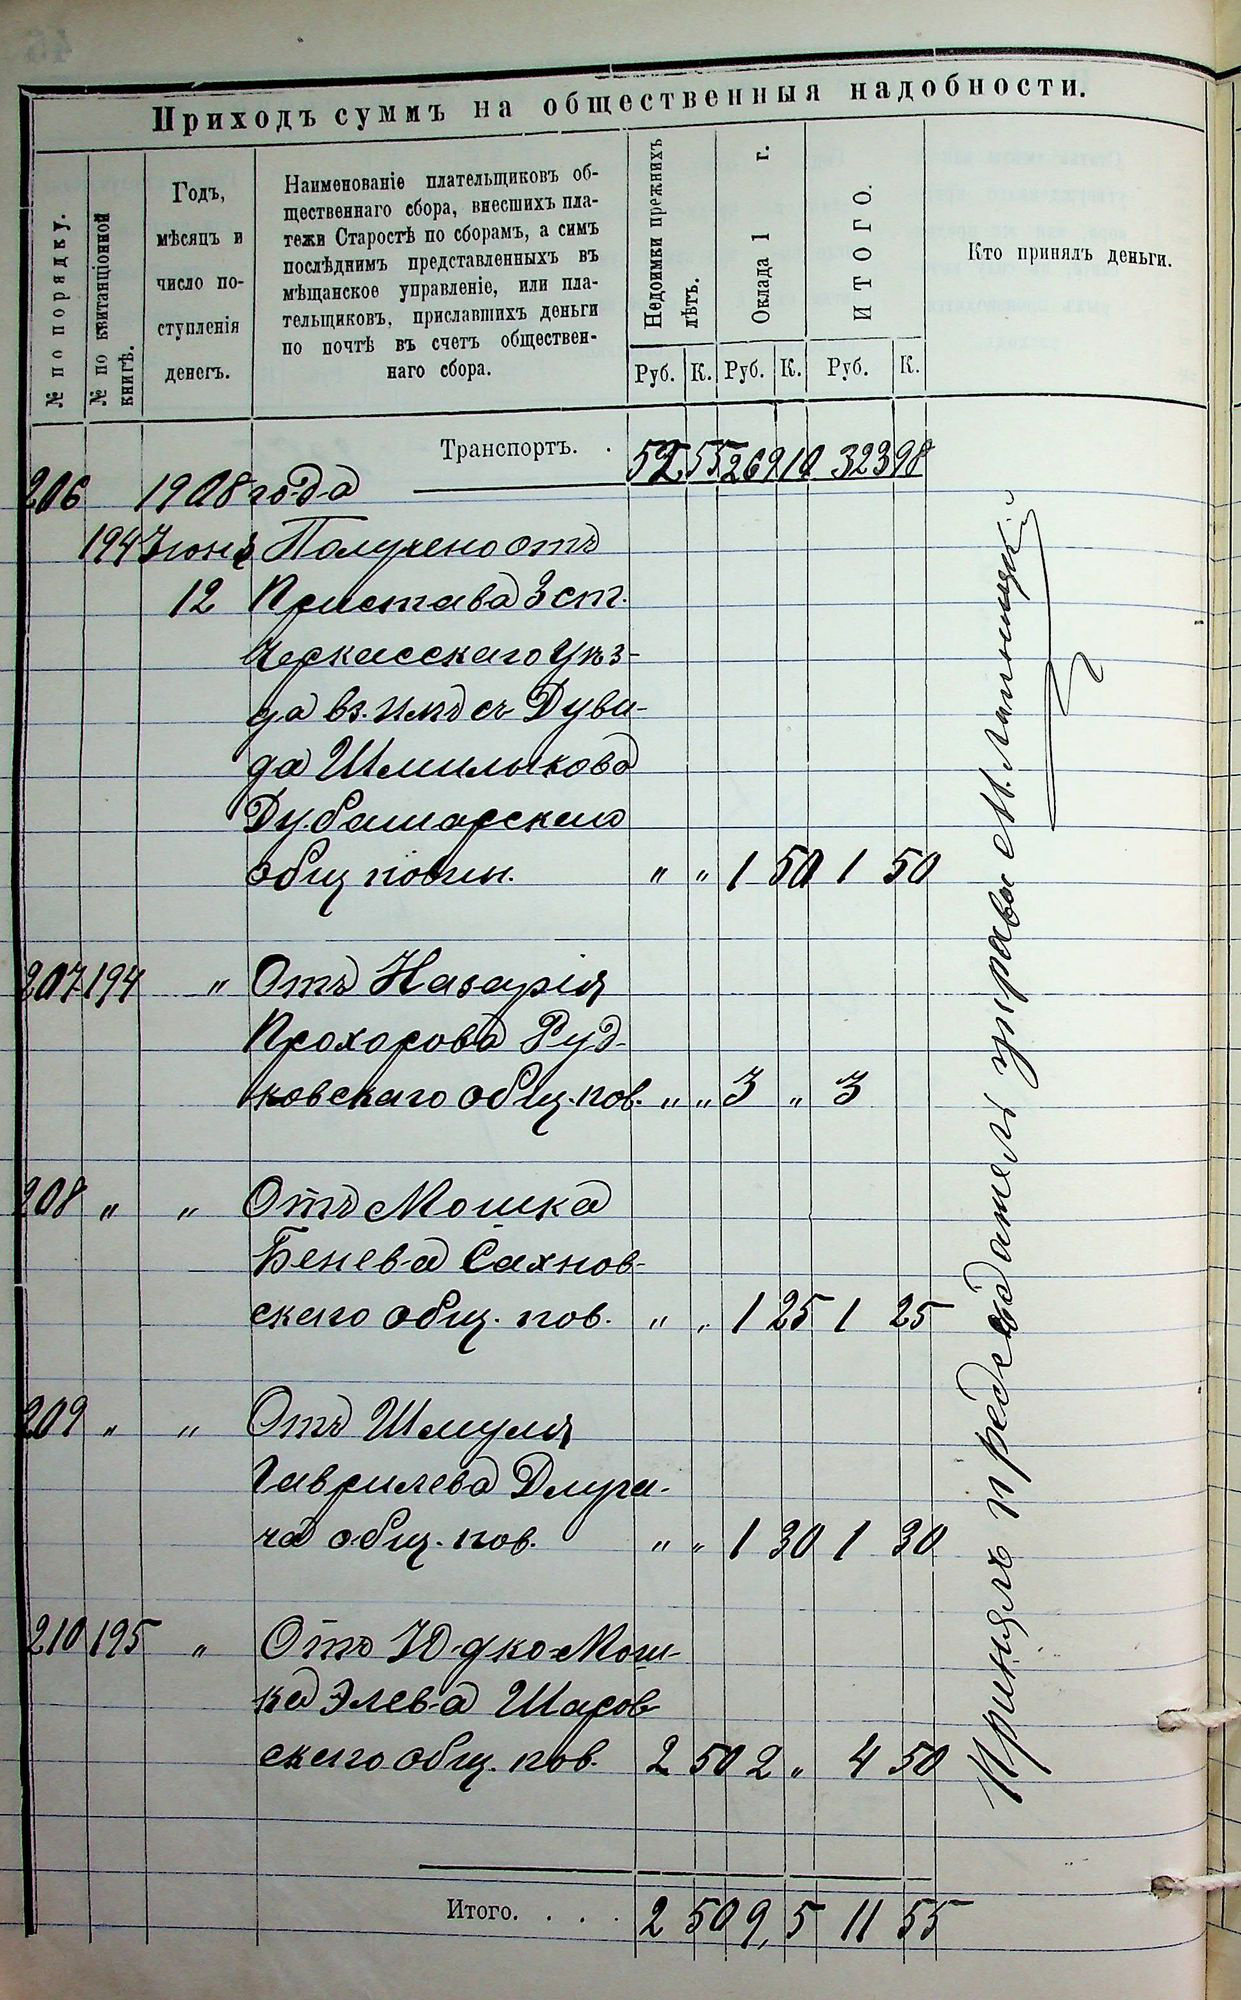 Приходъ суммъ на общественныя надобности.
№ по порядку.
№ по квитанціонной книгѣ.
Годъ,
мѣсяцъ и
число по-
ступленія
денегъ.
Наименованіе плательщиковъ об-
щественнаго сбора, внесшихъ пла-
тежи Старостѣ по сборамъ, а симъ
послѣднимъ представленныхъ въ
мѣщанское управленіе, или пла-
тельщиковъ, приславшихъ деньги
по почтѣ въ счетъ обществен-
наго сбора.
Недоимки прежнихъ лѣтъ.
Оклада 1 г.
ИТОГО.
Кто принялъ деньги.
Руб. К. Руб. К. Руб. К.
Транспортъ. . 52 55 269 10 323 98
206 1908 года
194 Іюня Получено отъ
12 Пристава 3 ст.
Черкасскаго Уѣз-
да вз. имъ съ Дуви-
да Шмилькова
Дубашарскаго
общ повин. " " 1 50 1 50
207 194 " Отъ Назарія
Прохорова Руд-
ковскаго общ. пов. " " 3 " 3
208 " " Отъ Мошка
Бенева Сахнов-
скаго общ. пов. " " 1 25 1 25
209 " " Отъ Шмуля
Гаврилева Длуга-
ча общ. пов. " " 1 30 1 30
210 195 " Отъ Юдко-Мош-
ка Элева Шаров-
скаго общ. пов. 2 50 2 " 4 50
Итого. . . . 2 50 9, 5 11 55
Принялъ председатель управы М.